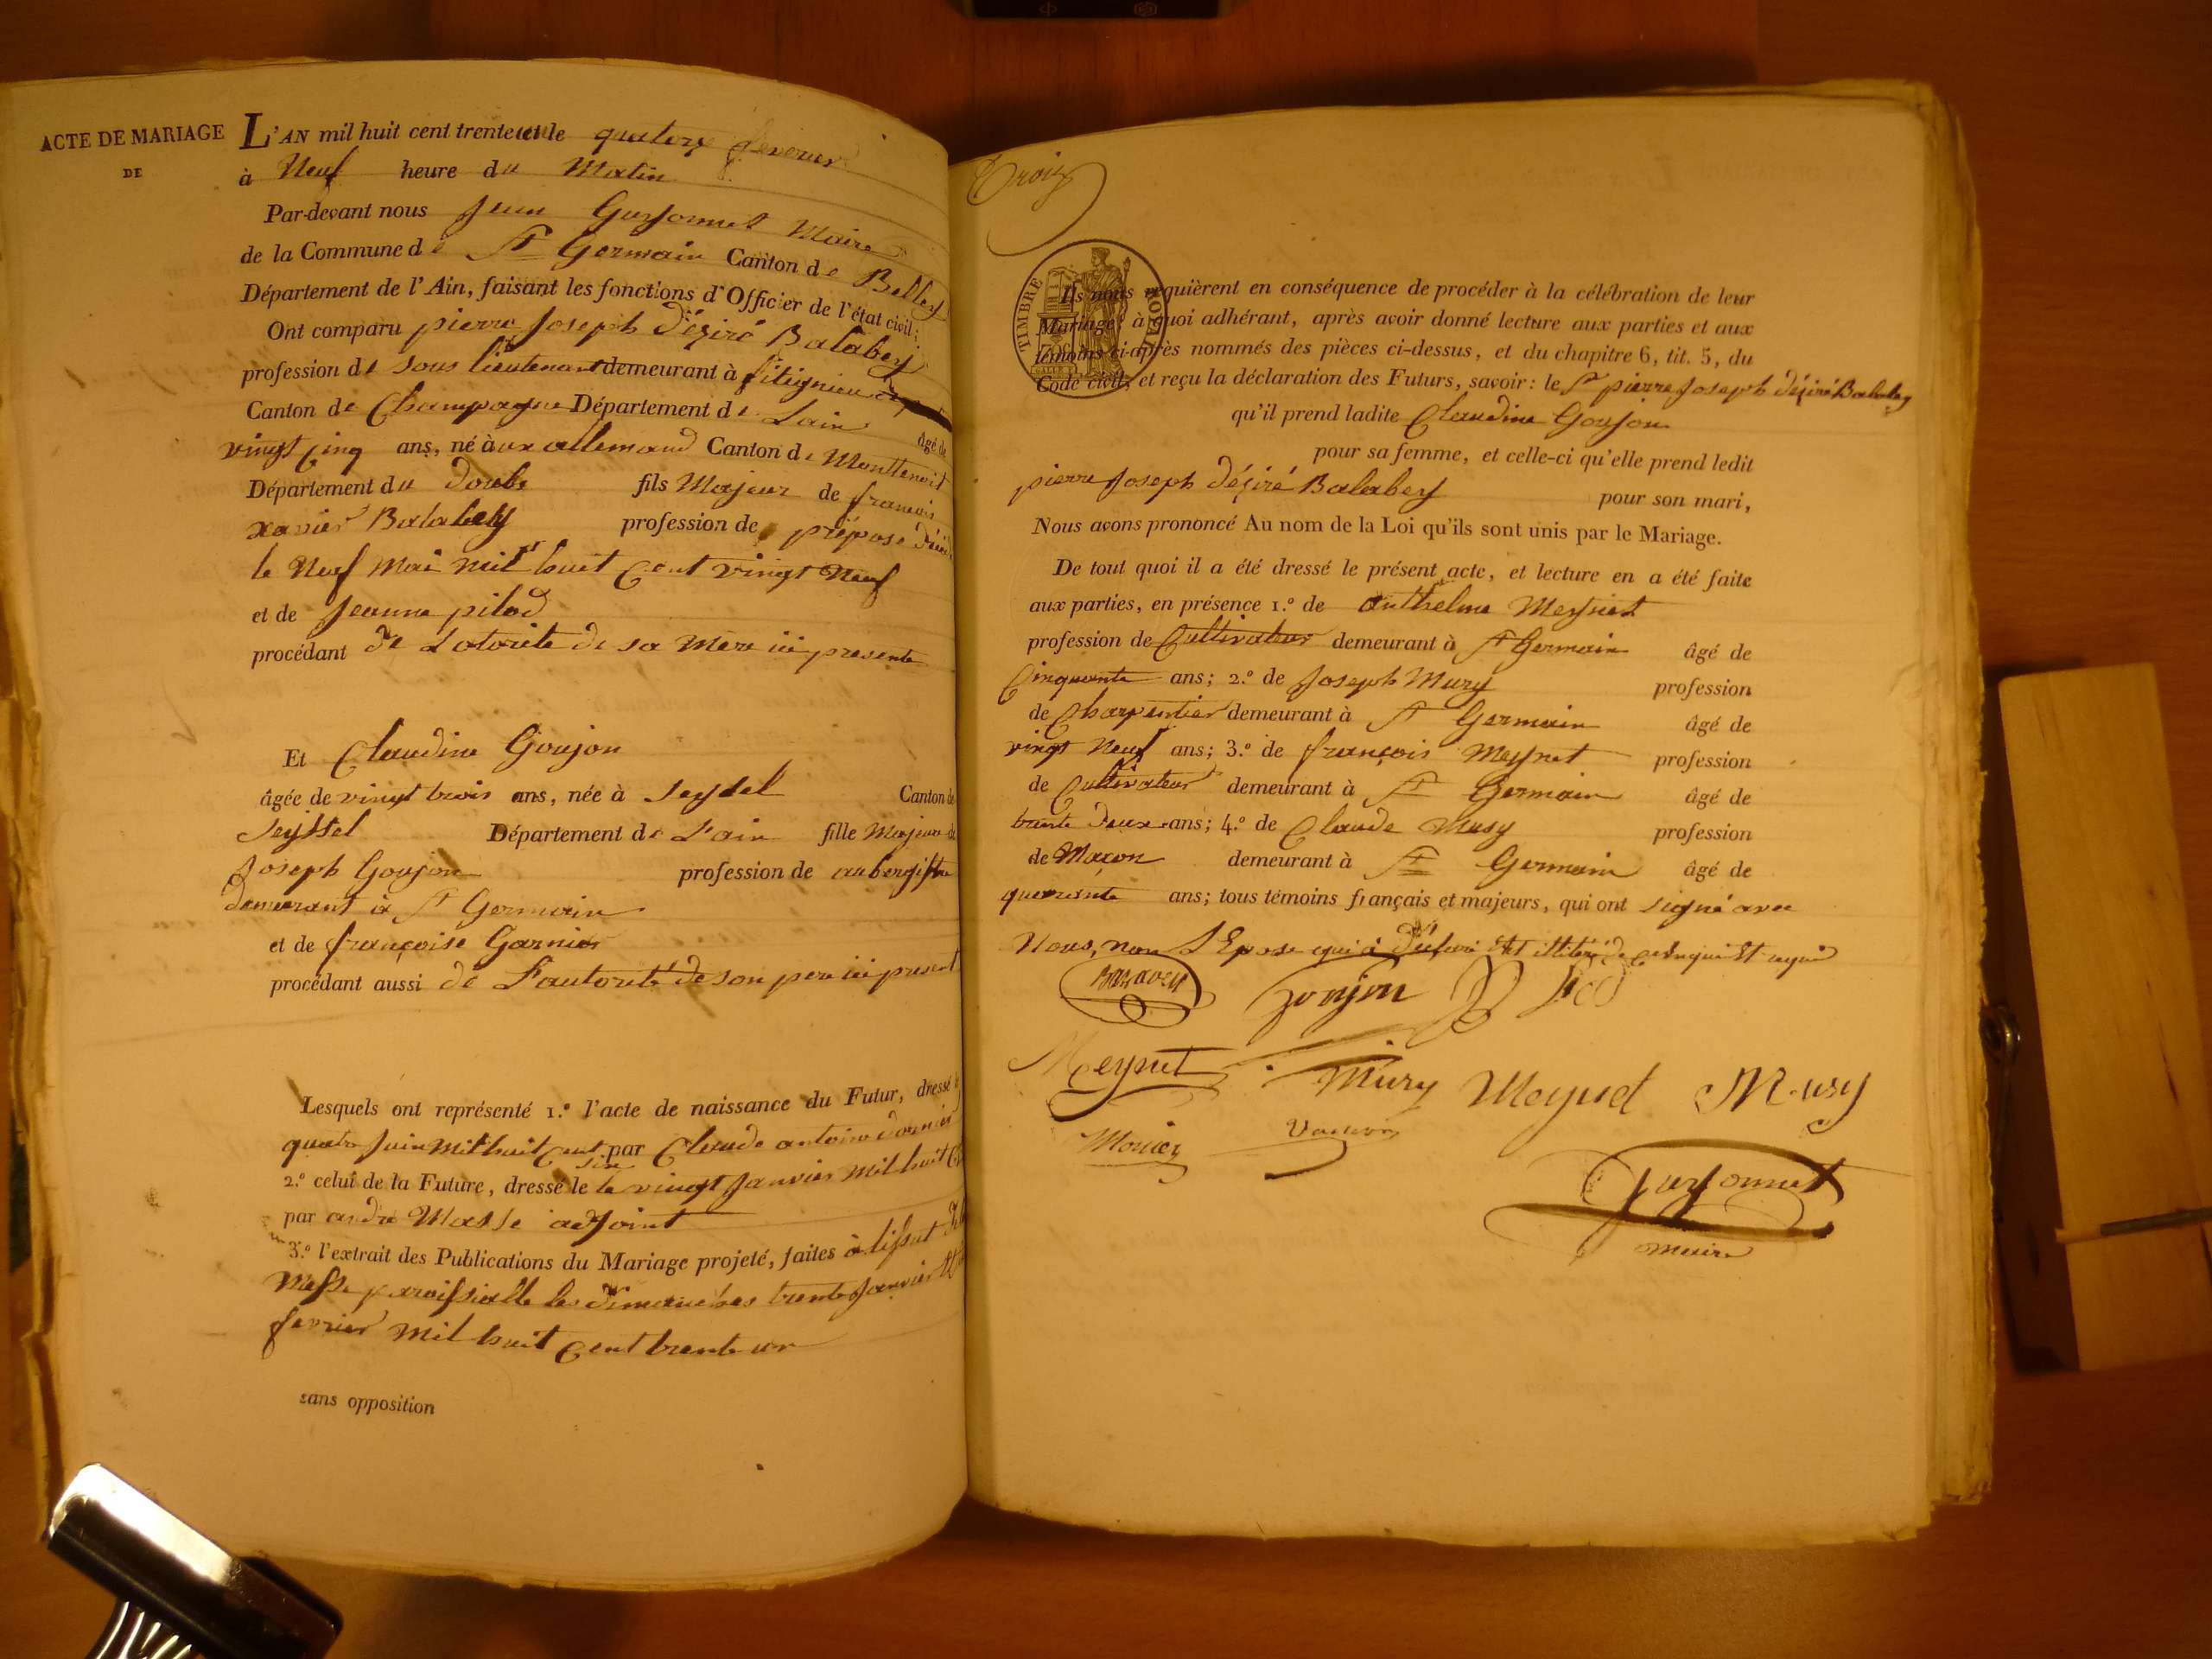 ACTE DE MARIAGE
DE
L'AN mil huit cent trente et le quatorze fevrier
à Neuf heure du Matin
Par-devant nous Jean Gursonnet Maire
de la Commune de St Germain Canton de Belley
Département de l'Ain, faisant les fonctions d'Officier de l'état civil;
Ont comparu pierre Joseph déziré Balabey
profession de sous lieutenant demeurant à fitignieu
Canton de Champagne Département de Lain âgé de
vingt Cinq ans, né à aux allemand Canton de Montbenoit
Département du doubs fils Majeur de francois
xavier Balabey profession de préposé
le Neuf Mai mil huit Cent vingt Neuf
et de Jeanne pilod
procédant de Lotorite de sa Mere ici presente
Et Claudine Goujon
âgée de vingt trois ans, née à Seyssel Canton de
Seyssel Département de L'ain fille Majeure de
Joseph Goujon profession de aubergiste
demeurant à St Germain
et de françoise Garnier
procédant aussi de L'autorité de son pere ici present
Lesquels ont représenté 1.º l'acte de naissance du Futur, dressé le
quatre Juin Mil huit Cent six par Claude antoine
2.º celui de la Future, dressé le le vingt Janvier Mil huit
par andré Masse adjoint
3.º l'extrait des Publications du Mariage projeté, faites à
Messe paroissialle les dimanches trente Janvier
fevrier Mil huit Cent trente un
sans opposition
Trois
TIMBRE ROYAL
Ils nous requièrent en conséquence de procéder à la célébration de leur
Mariage; à quoi adhérant, après avoir donné lecture aux parties et aux
témoins ci-après nommés des pièces ci-dessus, et du chapitre 6, tit. 5, du
Code civil, et reçu la déclaration des Futurs, savoir: le Sr pierre Joseph déziré Balabey
qu'il prend ladite Claudine Goujon
pour sa femme, et celle-ci qu'elle prend ledit
pierre Joseph déziré Balabey pour son mari,
Nous avons prononcé Au nom de la Loi qu'ils sont unis par le Mariage.
De tout quoi il a été dressé le présent acte, et lecture en a été faite
aux parties, en présence 1.º de anthelme Meynet
profession de Cultivateur demeurant à St Germain âgé de
Cinquante ans; 2.º de Joseph Mury profession
de Charpentier demeurant à St Germain âgé de
vingt Neuf ans; 3.º de françois Meynet profession
de Cultivateur demeurant à St Germain âgé de
trente deux ans; 4.º de Claude Musy profession
de Macon demeurant à St Germain âgé de
quarante ans; tous témoins français et majeurs, qui ont signé avec
Nous, non L'Epose qui à déclaré
goujon
Meynet Mury Meynet Musy
Gursonnet
maire